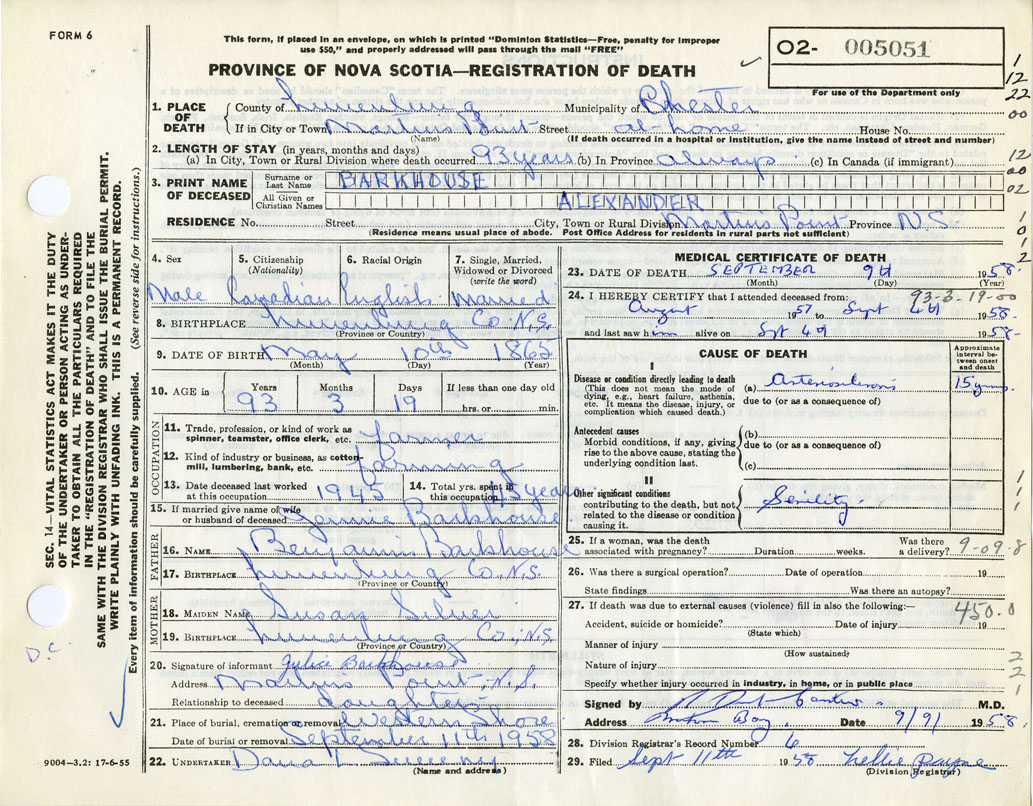 FORM 6
This form, if placed in an envelope, on which is printed "Dominion Statistics—Free, penalty for improper
use $50," and properly addressed will pass through the mail "FREE"
PROVINCE OF NOVA SCOTIA—REGISTRATION OF DEATH
O2- 005051
For use of the Department only
1
12
22
00
1. PLACE OF DEATH
County of Lunenburg Municipality of Chester
If in City or Town Martins Point Street at home House No.
(Name) (If death occurred in a hospital or institution, give the name instead of street and number)
2. LENGTH OF STAY (in years, months and days)
(a) In City, Town or Rural Division where death occurred 93 years (b) In Province always (c) In Canada (if immigrant)
12
00
02
3. PRINT NAME OF DECEASED
Surname or Last Name BARKHOUSE
All Given or Christian Names ALEXANDER
1
0
1
2
RESIDENCE No. Street City, Town or Rural Division Martins Point Province N.S
(Residence means usual place of abode. Post Office Address for residents in rural parts not sufficient)
SEC. 14—VITAL STATISTICS ACT MAKES IT THE DUTY
OF THE UNDERTAKER OR PERSON ACTING AS UNDER-
TAKER TO OBTAIN ALL THE PARTICULARS REQUIRED
IN THE "REGISTRATION OF DEATH" AND TO FILE THE
SAME WITH THE DIVISION REGISTRAR WHO SHALL ISSUE THE BURIAL PERMIT.
WRITE PLAINLY WITH UNFADING INK. THIS IS A PERMANENT RECORD.
Every item of information should be carefully supplied. (See reverse side for instructions.)
D.C
4. Sex 5. Citizenship (Nationality) 6. Racial Origin 7. Single, Married, Widowed or Divorced (write the word)
Male Canadian English Married
8. BIRTHPLACE Lunenburg Co N.S.
(Province or Country)
9. DATE OF BIRTH May 10th 1865
(Month) (Day) (Year)
10. AGE in Years Months Days If less than one day old
93 3 19 hrs. or min.
OCCUPATION
11. Trade, profession, or kind of work as
spinner, teamster, office clerk, etc. farmer
12. Kind of industry or business, as cotton-
mill, lumbering, bank, etc. farming
13. Date deceased last worked at this occupation 1945 14. Total yrs. spent in this occupation 75 years
15. If married give name of wife
or husband of deceased Jannie Barkhouse
FATHER
16. NAME Benjamin Barkhouse
17. BIRTHPLACE Lunenburg Co., N.S.
(Province or Country)
MOTHER
18. MAIDEN NAME Susan Silver
19. BIRTHPLACE Lunenburg Co., N.S.
(Province or Country)
20. Signature of informant Julice Barkhouse
Address Martins Point N.S.
Relationship to deceased daughter
21. Place of burial, cremation or removal Western Shore
Date of burial or removal September 11th 1958
22. UNDERTAKER Dana Sweeny
(Name and address)
9004—3.2: 17-6-55
MEDICAL CERTIFICATE OF DEATH
23. DATE OF DEATH SEPTEMBER 9th 1958.
(Month) (Day) (Year)
93-3-19-00
24. I HEREBY CERTIFY that I attended deceased from:
August 1957 to Sept 4th 1958.
and last saw him alive on Spt 4th 1958-
CAUSE OF DEATH
Approximate interval between onset and death
I
Disease or condition directly leading to death
(This does not mean the mode of
dying, e.g., heart failure, asthenia,
etc. It means the disease, injury, or
complication which caused death.)
(a) Arteriosclerosis 15 yrs
due to (or as a consequence of)
Antecedent causes
Morbid conditions, if any, giving
rise to the above cause, stating the
underlying condition last.
(b)
due to (or as a consequence of)
(c)
II
Other significant conditions
contributing to the death, but not
related to the disease or condition
causing it.
Senility.
1
1
1
25. If a woman, was the death associated with pregnancy? Duration weeks. Was there a delivery?
9-09-8
26. Was there a surgical operation? Date of operation 19
State findings Was there an autopsy?
27. If death was due to external causes (violence) fill in also the following:—
450.0
Accident, suicide or homicide? Date of injury 19
(State which)
Manner of injury
(How sustained)
Nature of injury
2
2
1
Specify whether injury occurred in industry, in home, or in public place
Signed by M.D.
Address Mahone Bay Date 9/9/ 1958.
28. Division Registrar's Record Number 6
29. Filed Sept 11th 1958 Nellie Payne
(Division Registrar)